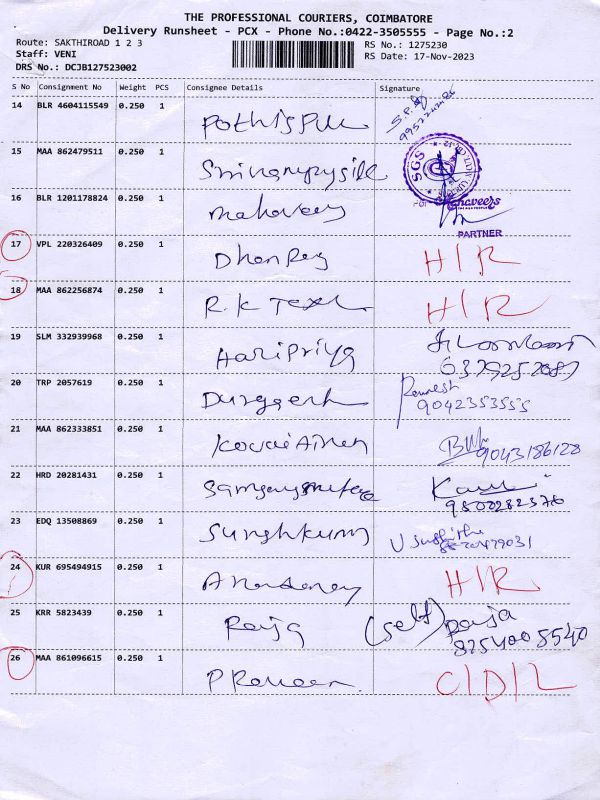 THE PROFESSIONAL COURIERS, COIMBATORE
Delivery Runsheet - PCX - Phone No.:0422-3505555 - Page No.:2
Route: SAKTHIROAD 1 2 3
RS No.: 1275230
Staff: VENI
RS Date: 17-Nov-2023
DRS No.: DCJB127523002
S No Consignment No Weight PCS Consignee Details Signature
14 BLR 4604115549 0.250 1
15 MAA 862479511 0.250 1
SGS
16 BLR 1201178824 0.250 1 mahaveers
For Mahaveers
PARTNER
17 VPL 220326409 0.250 1 Dhanraj H/R
18 MAA 862256874 0.250 1 R.K Text H/R
19 SLM 332939968 0.250 1 Haripriya
20 TRP 2057619 0.250 1 Ramesh
9042353555
21 MAA 862333851 0.250 1 9043186128
22 HRD 20281431 0.250 1
9500282376
23 EDQ 13508869 0.250 1
24 KUR 695494915 0.250 1 H/R
25 KRR 5823439 0.250 1 Raja (self) Raja
8254005540
26 MAA 861096615 0.250 1 Praveen C/D/L